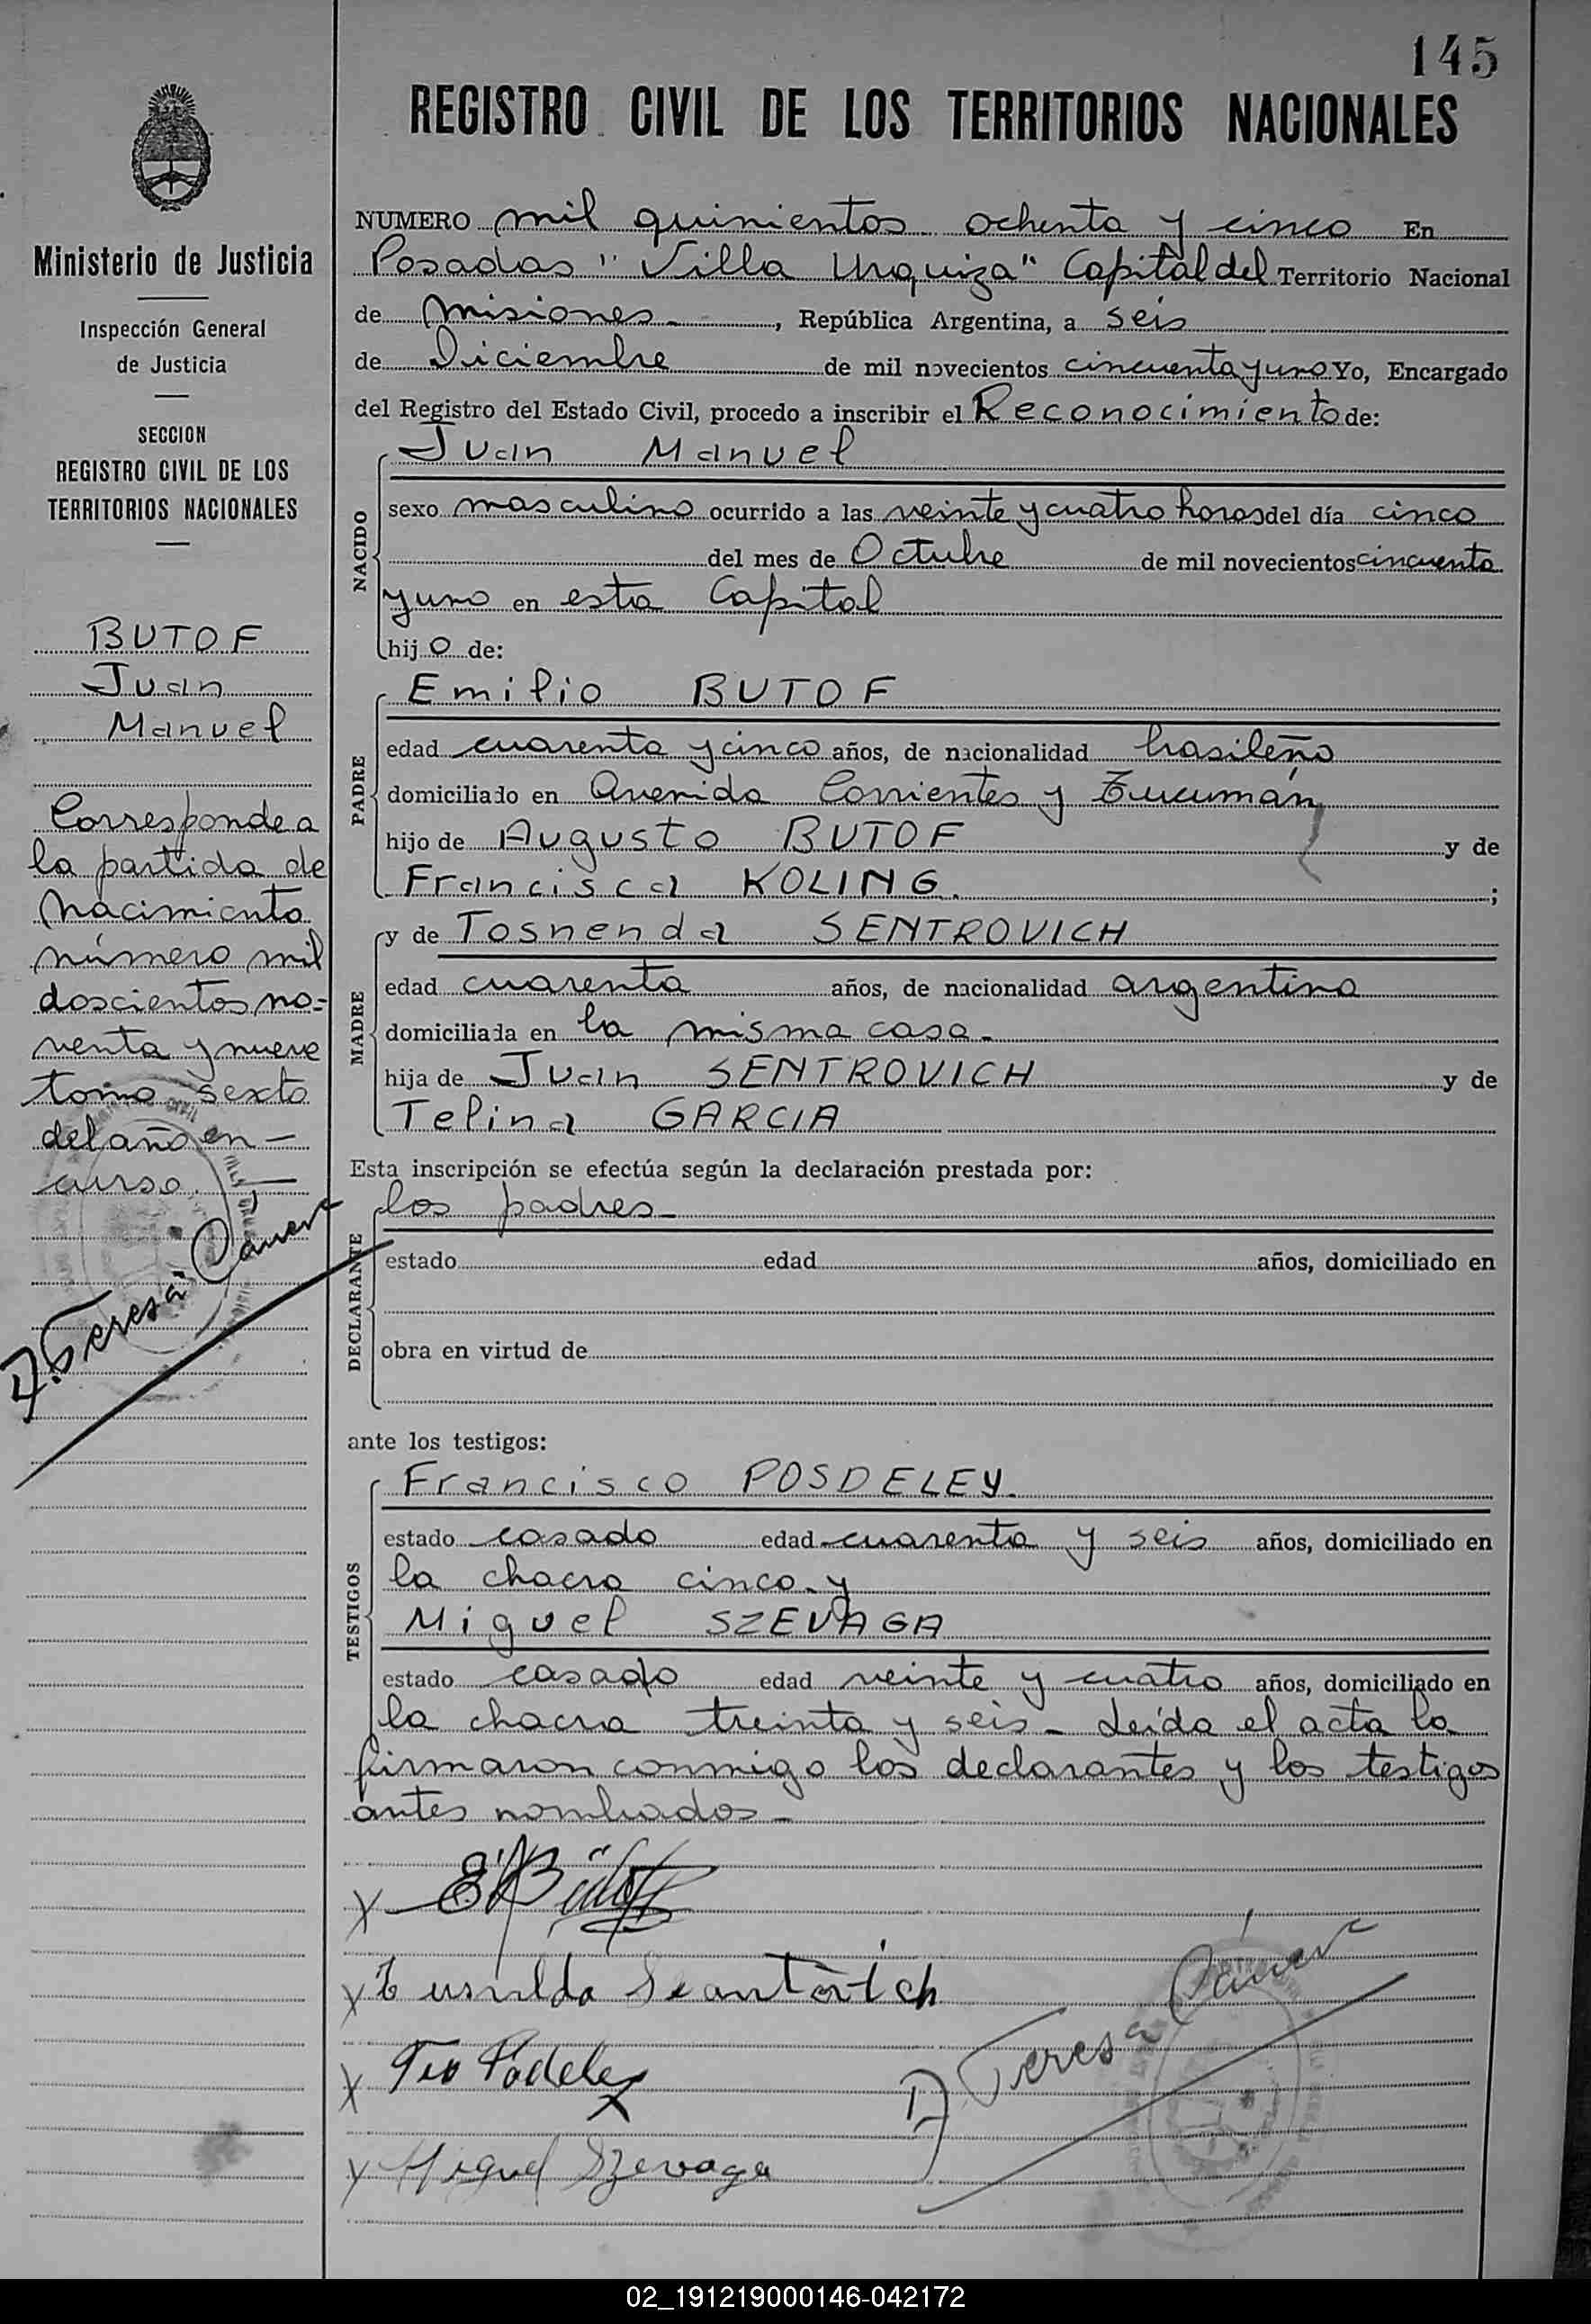 145
REGISTRO CIVIL DE LOS TERRITORIOS NACIONALES
Ministerio de Justicia
Inspección General
de Justicia
SECCION
REGISTRO CIVIL DE LOS
TERRITORIOS NACIONALES
BUTOF
Juan
Manuel
Corresponde a
la partida de
Nacimiento
número mil
doscientos no=
venta y nueve
tomo sexto
del año en -
curso.
Teresa
NUMERO mil quinientos ochenta y cinco En
Posadas "Villa Urquiza" Capital del Territorio Nacional
de Misiones-, República Argentina, a seis
de Diciembre de mil novecientos cincuenta y uno Yo, Encargado
del Registro del Estado Civil, procedo a inscribir el Reconocimiento de:
Juan Manuel
NACIDO
sexo masculino ocurrido a las veinte y cuatro horas del día cinco
del mes de Octubre de mil novecientos cincuenta
y uno en esta Capital
hijo de:
Emilio BUTOF
PADRE
edad cuarenta y cinco años, de nacionalidad brasileño
domiciliado en Avenida Corrientes y Tucumán
hijo de Augusto BUTOF y de
Francisca KOLING. ;
y de Tosnenda SENTROVICH
MADRE
edad cuarenta años, de nacionalidad argentina
domiciliada en la misma casa.-
hija de Juan SENTROVICH y de
Telina GARCIA
Esta inscripción se efectúa según la declaración prestada por:
los padres-
DECLARANTE
estado edad años, domiciliado en
obra en virtud de
ante los testigos:
Francisco POSDELEY.
TESTIGOS
estado casado edad cuarenta y seis años, domiciliado en
la chacra cinco-y
Miguel SZEVAGA
estado casado edad veinte y cuatro años, domiciliado en
la chacra treinta y seis- Leída el acta la
firmaron conmigo los declarantes y los testigos
antes nombrados-
X
X
X
Teresa
X Miguel Szevaga
02_191219000146-042172